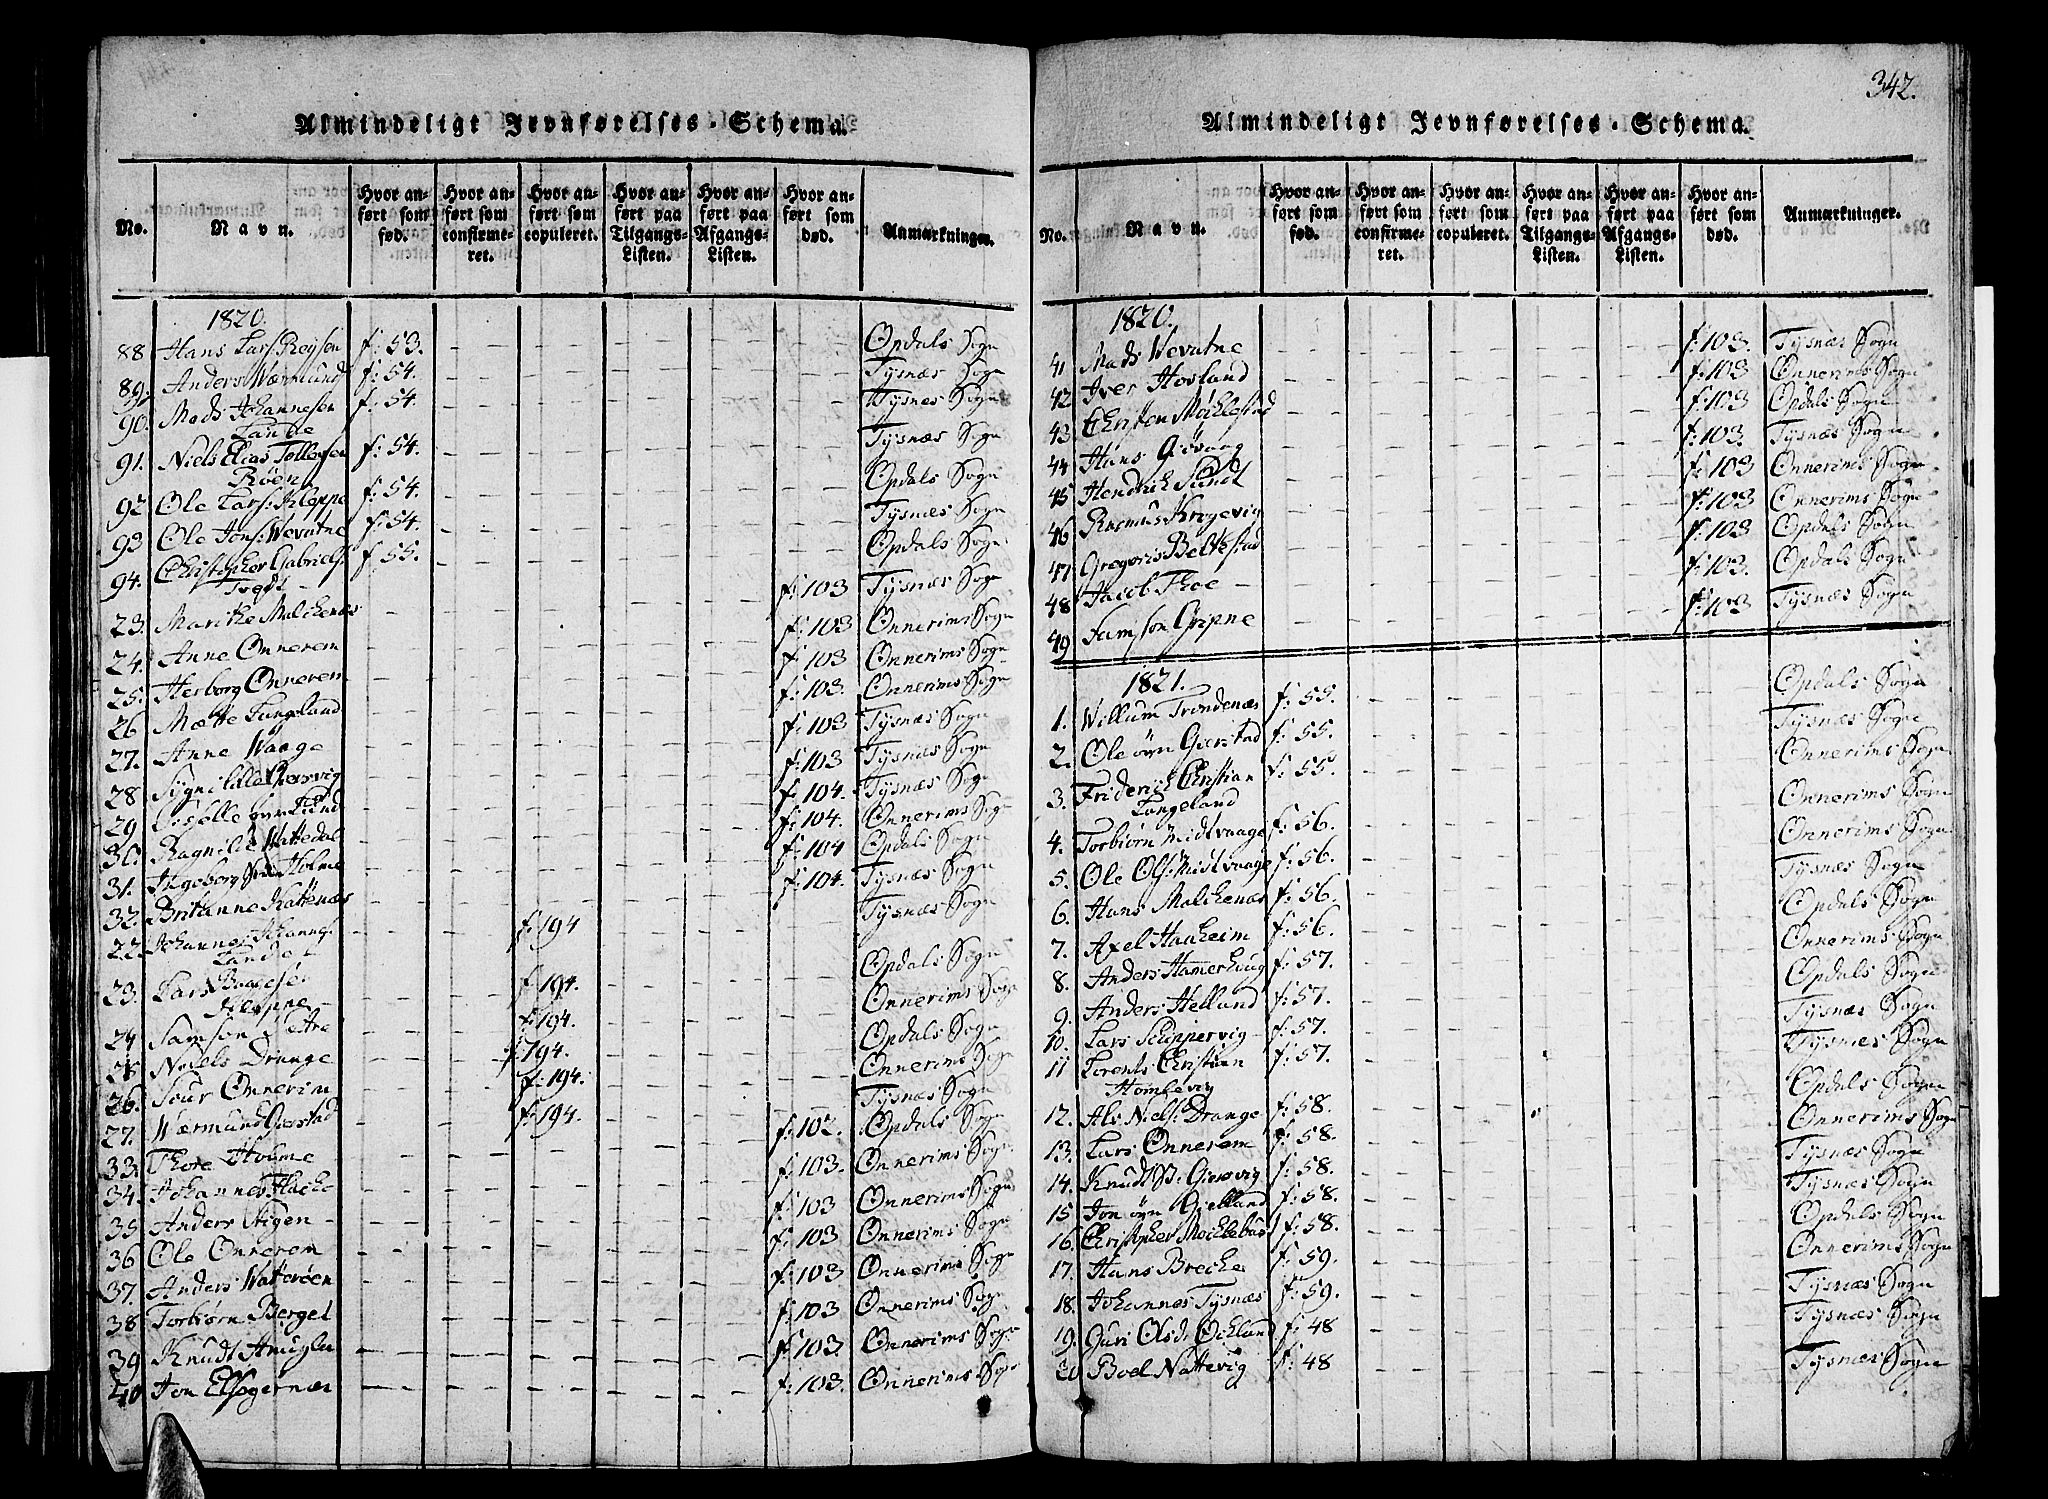 342.
Almindeligt Jevnførelses-Schema.
No. Navn. Hvor anført som fød. Hvor anført som confirmeret. Hvor anført som copuleret. Hvor anført paa Tilgangs-Listen. Hvor anført paa Afgangs-Listen. Hvor anført som død. Anmærkninger.
1820.
88 Hans Lars: Reysen f: 53. Opdals Sogn
89 Anders Wærmund f: 54. Tysnæs Sogn
90. Mads Johannesen f: 54. Tysnes Sogn
Lande
91. Niels Elias Tollevsen f: 54. Tysnæs Sogn
Røen
92 Ole Lars: Kleppe f: 54. Opdals Sogn
93 Ole Jons: Wevatne f: 54. Tysnæs Sogn
94. Christopher Gabriels: f: 55. Opdals Sogn
Tvedt
23. Marithe Malchenæs f: 103 Tysnæs Sogn
24. Anne Onnerem f: 103 Onnerims Sogn
25. Herborg Onnerem f: 103 Onnerims Sogn
26 Mætte Tungeland f: 103. Onnerims Sogn
27. Anne Waage f: 103 Tysnæs Sogn
28 Signi Lille f: 103 Tysnæs Sogn
29 f: 104. Tysnæs Sogn
30 Ragnilde Wattedal f: 104. Onnerims Sogn
31. Ingeborg Holme f: 104 Opdals Sogn
32. Britanne Nattenæs f: 104. Tysnæs Sogn
22 Johannes Johannes: f: 194 Tysnæs Sogn
Lande
23. Lars Baars: f: 194. Opdals Sogn
Kleppe
24 Samson Sætre f: 194. Onnerims Sogn
25 Niels Drange f: 194. Opdals Sogn
26. Siur Onnerim f: 194. Onnerims Sogn
27. Wærmund Gierstad f: 194. Tysnæs Sogn
33. Thore Houme f: 102. Opdals Sogn
34. Johannes Hacke f: 103. Onnerims Sogn
35 Anders Stigen f: 103 Onnerims Sogn
36 Ole Onnerem f: 103 Onnerims Sogn
37. Anders Watterøen f: 103 Onnerims Sogn
38 Torbiørn Berget f: 103 Onnerims Sogn
39 Knudt Hauglan f: 103 Onnerims Sogn
40 Jon Elsøgernæs f: 103. Onnerims Sogn
Almindeligt Jevnførelses-Schema.
No. Navn. Hvor anført som fød. Hvor anført som confirmeret. Hvor anført som copuleret. Hvor anført paa Tilgangs-Listen. Hvor anført paa Afgangs-Listen. Hvor anført som død. Anmærkninger.
1820.
41 Mads Wevatne f: 103. Tysnæs Sogn
42 Iver Hovland f: 103 Onnerims Sogn
43 Christen Møchlestad f: 103 Opdals Sogn
44 Hans Giøvaag f: 103. Tysnæs Sogn
45 Hendrik Sundt f: 103 Onnerims Sogn
46 Rasmus Krogevig f: 103 Onnerims Sogn
47 Gregoris Beltestad f: 103 Opdals Sogn
48 Jacob Thoe f: 103. Opdals Sogn
49 Samson Gripne f: 103 Tysnæs Sogn
1821.
1. Willum Trondenæs f: 55. Opdals Sogn
2. Ole øvn Gierstad f: 55. Tysnæs Sogn
3. Friderich Christian f: 55. Onnerims Sogn
Tungeland
4. Torbiørn Midtvaage f: 56. Onnerims Sogn
5. Ole Ols: Midtvaage f: 56. Onnerims Sogn
6. Hans Malchenæs f: 56. Tysnæs Sogn
7. Axel Haaheim f: 56. Opdals Sogn
8. Anders Hamerhoug f: 57. Onnerims Sogn
9. Anders Helland f: 57. Opdals Sogn
10. Lars Schippervig f: 57. Tysnæs Sogn
11 Lorents Christian f: 57. Tysnæs Sogn
Homlevig
12. Als Niels: Drange f: 58. Opdals Sogn
13. Lars Onnerem f: 58. Onnerims Sogn
14. Knudt S: Giersvig f: 58. Tysnæs Sogn
15 Jon øvn Gielland f: 58. Tysnæs Sogn
16. Christopher Mochlebus f: 58. Opdals Sogn
17. Hans Breche f: 59. Onnerims Sogn
18. Johannes Tysnæs f: 59. Tysnæs Sogn
19. Guri Olsd: Ocland f: 48 Tysnæs Sogn
20 Boel Nattevig f: 48 Tysnæs Sogn